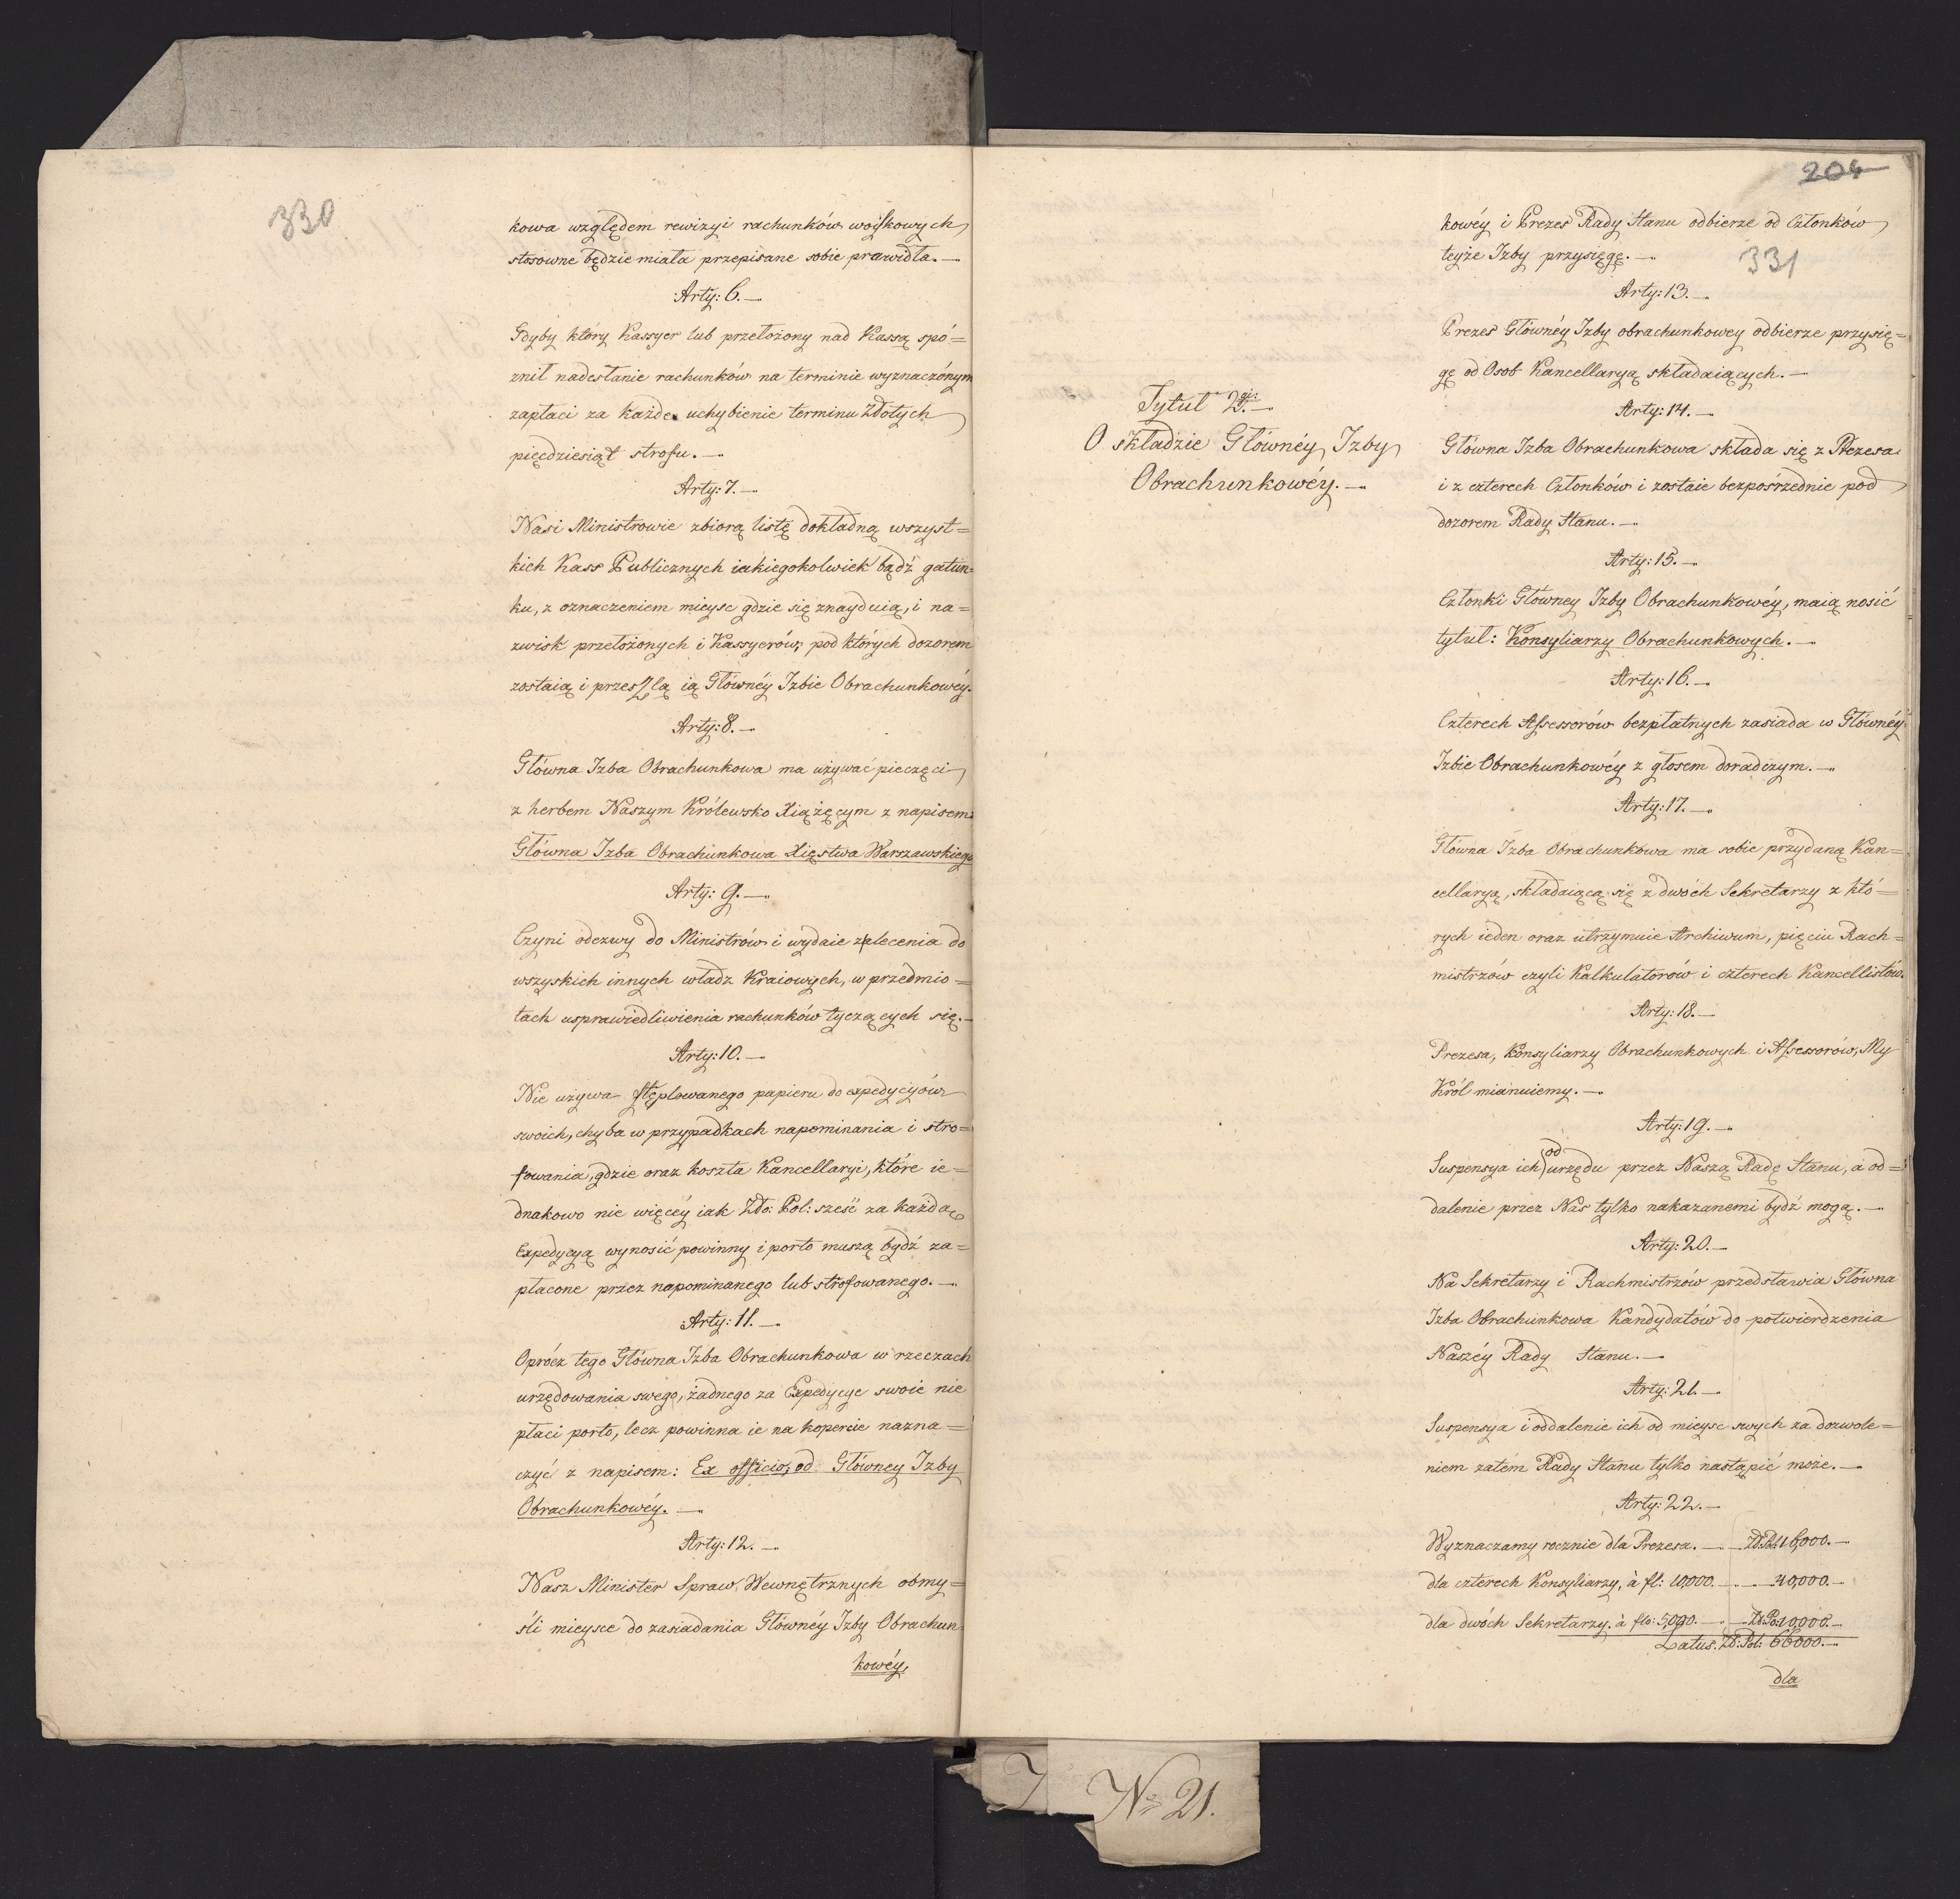 330
kowa względem rewizyi rachunków woyskowych
stosowne będzie miała przepisane sobie prawidła.—
Arty: 6.—
Gdyby który Kassyer lub przełożony nad Kassą spó=
znił nadesłanie rachunków na terminie wyznaczónym
zapłaci za każde uchybienie terminu Złotych
pięćdziesiąt strofu.—
Arty: 7.—
Nasi Ministrowie zbiorą listę dokładną wszyst=
kich Kass Publicznych iakiegokolwiek bądź gatun=
ku, z oznaczeniem mieysc gdzie się znayduią, i na=
zwisk przełożonych i Kassyerów, pod których dozorem
zostaią i przeszlą ią Główney Izbie Obrachunkowéy.
Arty: 8.—
Główna Izba Obrachunkowa ma używać pieczęci
z herbem Naszym Królewsko Xiążęcym z napisem:
Główna Izba Obrachunkowa Xięstwa Warszawskiego
Arty: 9.—
Czyni odezwy do Ministrów i wydaie zalecenia do
wszyskich innych władz Kraiowych, w przedmio=
tach usprawiedliwienia rachunków tyczących się.—
Arty: 10.—
Nie używa stęplowanego papieru do expedycyów
swoich, chyba w przypadkach napominania i stro=
fowania, gdzie oraz koszta Kancellaryi, które ie=
dnakowo nie więcéy iak Zło: Pol: sześć za każdą
Expedycyą wynosić powinny i porto muszą bydź za=
płacone przez napominanego lub strofowanego.—
Arty: 11.—
Oprócz tego Główna Izba Obrachunkowa w rzeczach
urzędowania swego, żadnego za Expedycye swoie nie
płaci porto, lecz powinna ie na kopercie nazna=
czyć z napisem: Ex officio, od Główney Izby
Obrachunkowéy.—
Arty: 12.—
Nasz Minister Spraw Wewnętrznych obmy=
śli mieysce do zasiadania Główney Izby Obrachun
kowéy,
204
331
kowéy i Prezes Rady Stanu odbierze od Członków
teyże Izby przysięgę.—
Arty: 13.—
Prezes Główney Izby obrachunkowey odbierze przysię=
gę od Osob Kancellaryą składaiących.—
Tytuł 2gi:—
O składzie Główney Izby
Obrachunkowéy.—
Arty: 14.—
Główna Izba Obrachunkowa składa się z Prezesa
i z czterech Członków i zostaie bezpośrzednie pod
dozorem Rady Stanu.—
Arty: 15.—
Członki Główney Izby Obrachunkowéy, maią nosić
tytuł: Konsyliarzy Obrachunkowych.—
Arty: 16.—
Czterech Assessorów bezpłatnych zasiada w Główney
Izbie Obrachunkowéy z głosem doradczym.—
Arty: 17.—
Główna Izba Obrachunkowa ma sobie przydaną Kan=
cellaryą, składaiącą się z dwóch Sekretarzy z któ=
rych ieden oraz utrzymuie Archiwum, pięciu Rach=
mistrzów czyli Kalkulatorów i czterech Kancellistów.
Arty: 18.—
Prezesa, Konsyliarzy Obrachunkowych i Assessorów, My
Król mianuiemy.—
Arty: 19.—
Suspensya ich od urzędu przez Naszą Radę Stanu, a od=
dalenie przez Nas tylko nakazanemi bydź mogą.—
Arty: 20.—
Na Sekretarzy i Rachmistrzów przedstawia Główna
Izba Obrachunkowa Kandydatów do potwierdzenia
Naszéy Rady Stanu.—
Arty: 21.—
Suspensya i oddalenie ich od mieysc swych za dozwole=
niem zatém Rady Stanu tylko nastąpić może.—
Arty: 22.—
Wyznaczamy rocznie dla Prezesa.— Zł: Pol: 16,000.—
dla czterech Konsyliarzy, à fl: 10,000.— 40,000.—
dla dwóch Sekretarzy. à flo: 5,000.— Zł: Po: 10,000.—
Latus: Zł: Pol: 66000.—
dla
No 21.